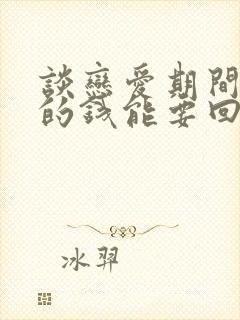 談戀愛期間
的錢能要回
冰羿